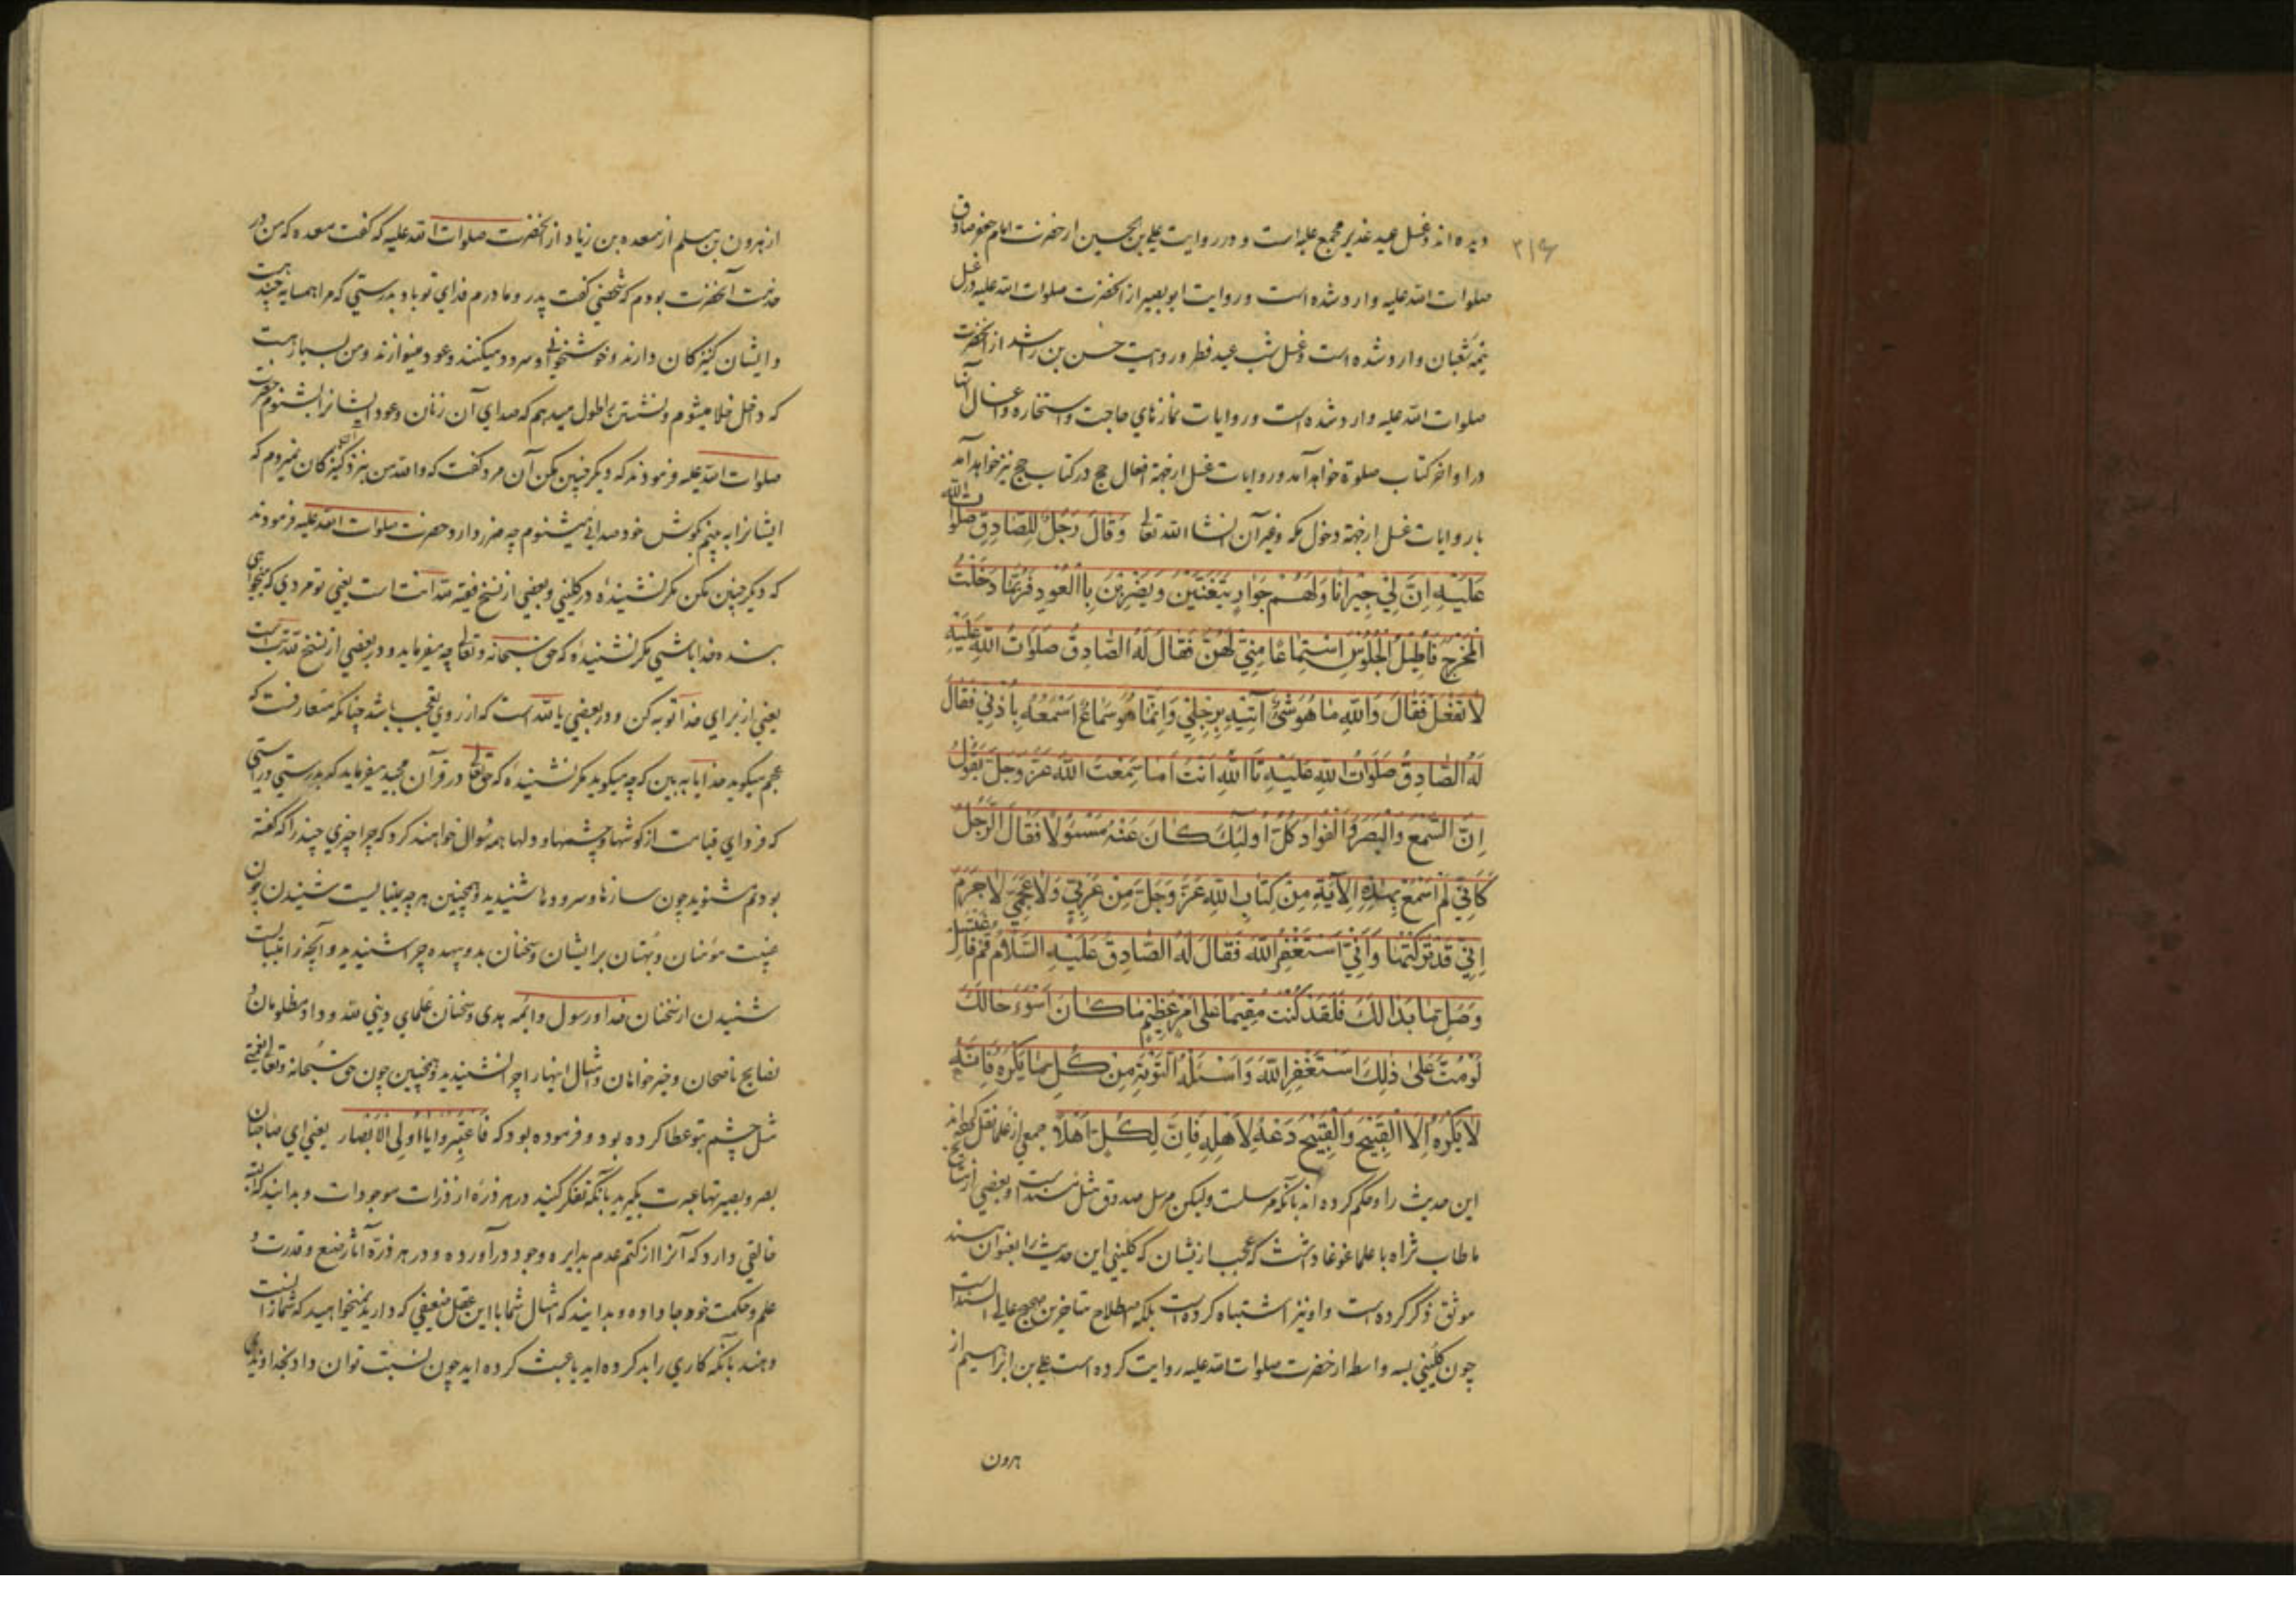 ۳۱۶
دیده‌اند و غسل عید غدیر مجمع علیه است و در روایت علی بن الحسین از حضرت امام جعفر صادق
صلوات الله علیه وارد شده است و روایت ابو بصیر از آنحضرت صلوات الله علیه در غسل
نیمه شعبان وارد شده است و غسل شب عید فطر در روایت حسن بن راشد از آنحضرت
صلوات الله علیه وارد شده است و روایات نمازهای حاجت و استخاره و اغسال آنها
در اواخر کتاب صلوة خواهد آمد و روایات غسل از جهة افعال حج در کتاب حج نیز خواهد آمد
با روایات غسل از جهة دخول مکه و غیر آن انشاء الله تعالی وَقَالَ رَجُلٌ لِلصَّادِقِ صَلَوَاتُ اللهِ
عَلَيْهِ اِنَّ لِي جِيرَانًا وَلَهُمْ جَوَارٍ يَتَغَنَّيْنَ وَيَضْرِبْنَ بِالْعُودِ فَرُبَّمَا دَخَلْتُ
الْمَخْرَجَ فَاُطِيلُ الْجُلُوسَ اسْتِمَاعًا مِنِّي لَهُنَّ فَقَالَ لَهُ الصَّادِقُ صَلَوَاتُ اللهِ عَلَيْهِ
لَا تَفْعَلْ فَقَالَ وَاللهِ مَا هُوَ شَيْءٌ آتِيهِ بِرِجْلِي وَاِنَّمَا هُوَ سَمَاعٌ اَسْمَعُهُ بِاُذُنِي فَقَالَ
لَهُ الصَّادِقُ صَلَوَاتُ اللهِ عَلَيْهِ تَاللهِ اَنْتَ اَمَا سَمِعْتَ اللهَ عَزَّ وَجَلَّ يَقُولُ
اِنَّ السَّمْعَ وَالْبَصَرَ وَالْفُؤَادَ كُلُّ اُولٰئِكَ كَانَ عَنْهُ مَسْئُولًا فَقَالَ الرَّجُلُ
كَاَنِّي لَمْ اَسْمَعْ بِهٰذِهِ الْآيَةِ مِنْ كِتَابِ اللهِ عَزَّ وَجَلَّ مِنْ عَرَبِيٍّ وَلَا عَجَمِيٍّ لَا جَرَمَ
اِنِّي قَدْ تَرَكْتُهَا وَاَنِّي اَسْتَغْفِرُ اللهَ فَقَالَ لَهُ الصَّادِقُ عَلَيْهِ السَّلَامُ قُمْ فَاغْتَسِلْ
وَصَلِّ مَا بَدَا لَكَ فَلَقَدْ كُنْتَ مُقِيمًا عَلَى اَمْرٍ عَظِيمٍ مَا كَانَ اَسْوَءَ حَالَكَ
لَوْ مُتَّ عَلَى ذٰلِكَ اسْتَغْفِرِ اللهَ وَاسْئَلْهُ التَّوْبَةَ مِنْ كُلِّ مَا يَكْرَهُ فَاِنَّهُ
لَا يَكْرَهُ اِلَّا الْقَبِيحَ وَالْقَبِيحَ دَعْهُ لِاَهْلِهِ فَاِنَّ لِكُلٍّ اَهْلًا جمعی از علما نقل کرده‌اند
این حدیث را و حکم کرده‌اند بآنکه مرسلست ولیکن مرسل صدوق مثل مسندست و بعضی از مشایخ
ما طاب ثراه با علما غوغا داشت که عجب از ایشان که کلینی این حدیث را بعنوان مسند
موثق ذکر کرده است و او نیز اشتباه کرده است بلکه باصطلاح متاخرین صحیح عالی السند است
چون کلینی بسه واسطه از حضرت صلوات الله علیه روایت کرده است علی بن ابراهیم از
هرون
از هرون بن مسلم از مسعده بن زیاد از آنحضرت صلوات الله علیه که گفت مسعده که من در
خدمت آنحضرت بودم که شخصی گفت پدر و مادرم فدای تو باد بدرستی که مرا همسایه چند هست
و ایشان کنیزکان دارند و خوشخوانی و سرود میکنند و عود مینوازند و من بسیار هست
که داخل خلا میشوم و نشستن را طول میدهم که صدای آن زنان و عود ایشانرا بشنوم حضرت
صلوات الله علیه فرمودند که دیگر چنین مکن آن مرد گفت که والله من بنزد کنیزکان نمیروم که
ایشانرا به بینم بگوش خود صدائی میشنوم چه ضرر دارد حضرت صلوات الله علیه فرمودند
که دیگر چنین مکن مگر نشنیده در کلینی و بعضی از نسخ فقیه لله انت است یعنی تو مردی که میخواهی
بنده خدا باشی مگر نشنیده که حق سبحانه و تعالی چه میفرماید و در بعضی از نسخ لله تب است
یعنی از برای خدا توبه کن و در بعضی یا لله است که از روی تعجب باشد چنانکه متعارفست که
عجم میگوید خدایا به بین که چه میگوید مگر نشنیده که حق تعالی در قرآن مجید میفرماید که بدرستی و راستی
که فردای قیامت از گوشها و چشمها و دلها همه سؤال خواهند کرد که چرا چیزی چند را که گفته
بودیم مشنوید چون سازها و سرودها شنیدید و همچنین هر چه نمیبایست شنیدن چون
غیبت مؤمنان و بهتان بر ایشان و سخنان بد و بیهده چرا شنیدید و آنچه را میبایست
شنیدن از سخنان خدا و رسول و ائمه هدی و سخنان علمای دینی لله و داد مظلومان و
نصایح ناصحان و خیرخواهان و امثال اینها را چرا نشنیدید و همچنین چون حق سبحانه و تعالی نعمتی
مثل چشم بتو عطا کرده بود و فرموده بود که فَاعْتَبِرُوا يَا اُولِي الْاَبْصَارِ یعنی ای صاحبان
بصر و بصیرتها عبرت بگیرید بآنکه تفکر کنید در هر ذره از ذرات موجودات و بدانید که البته
خالقی دارد که آنرا از کتم عدم بدایره وجود درآورده و در هر ذره آثار صنع و قدرت و
علم و حکمت خود جا داده و بدانید که امثال شما با این عقل ضعیفی که دارید نمیخواهید که شما را نسبت
دهند بآنکه کاری را بد کرده‌اید یا عبث کرده‌اید چون نسبت توان داد بخداوندی